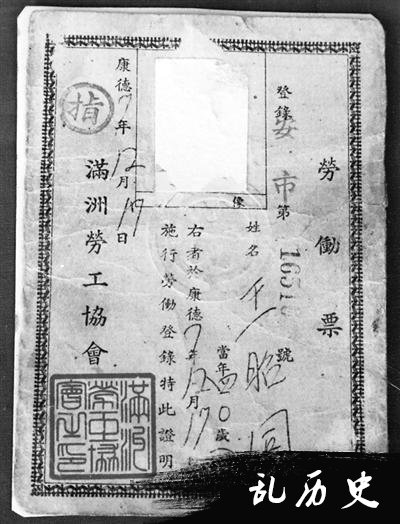 勞働票
登錄安市第
號
姓名
當年四〇歲
右者於康德7年12月17
施行勞働登錄特此證明
像
康德7年12月17日
滿洲勞工協會
指
滿洲勞工協會之印
乱历史